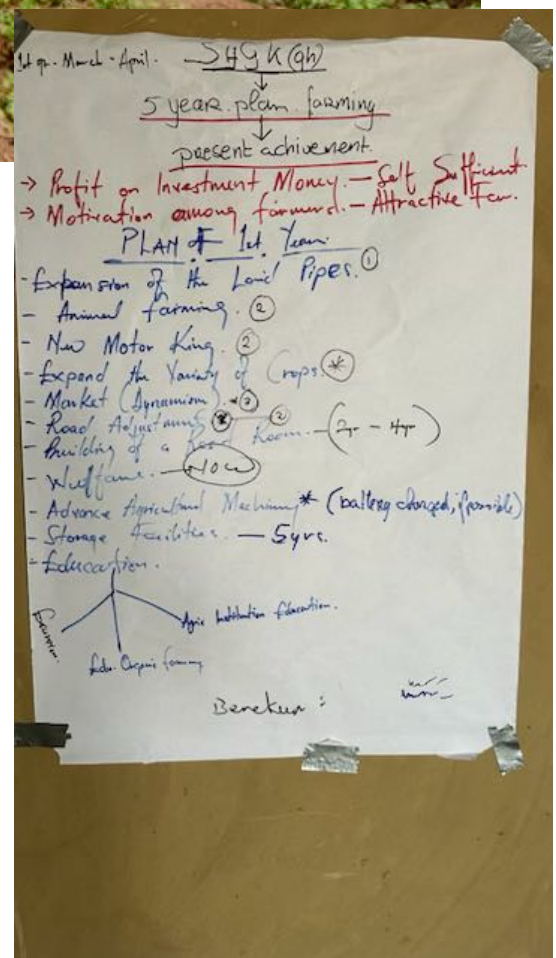 1st qr. March - April. SHGK (gh)
5 year plan farming
present achivement.
→ Profit on Investment Money. — Self Sufficient.
→ Motivation among farmers. — Attractive
PLAN 1st. Year.
- Expansion of the Land Pipes. ①
- Animal farming. ②
- New Motor King. ②
- Expand the Variety of Crops. *
- Market (Dynamism)
- Road Adjustment ②
- Building of a Room. — (2yr - 4yr)
- NOW
- Advance Agricultural Machinery * (battery charged, if possible)
- Storage Facilities. — 5yrs.
- Education.
Agric Institution Education.
Edu. Organic farming